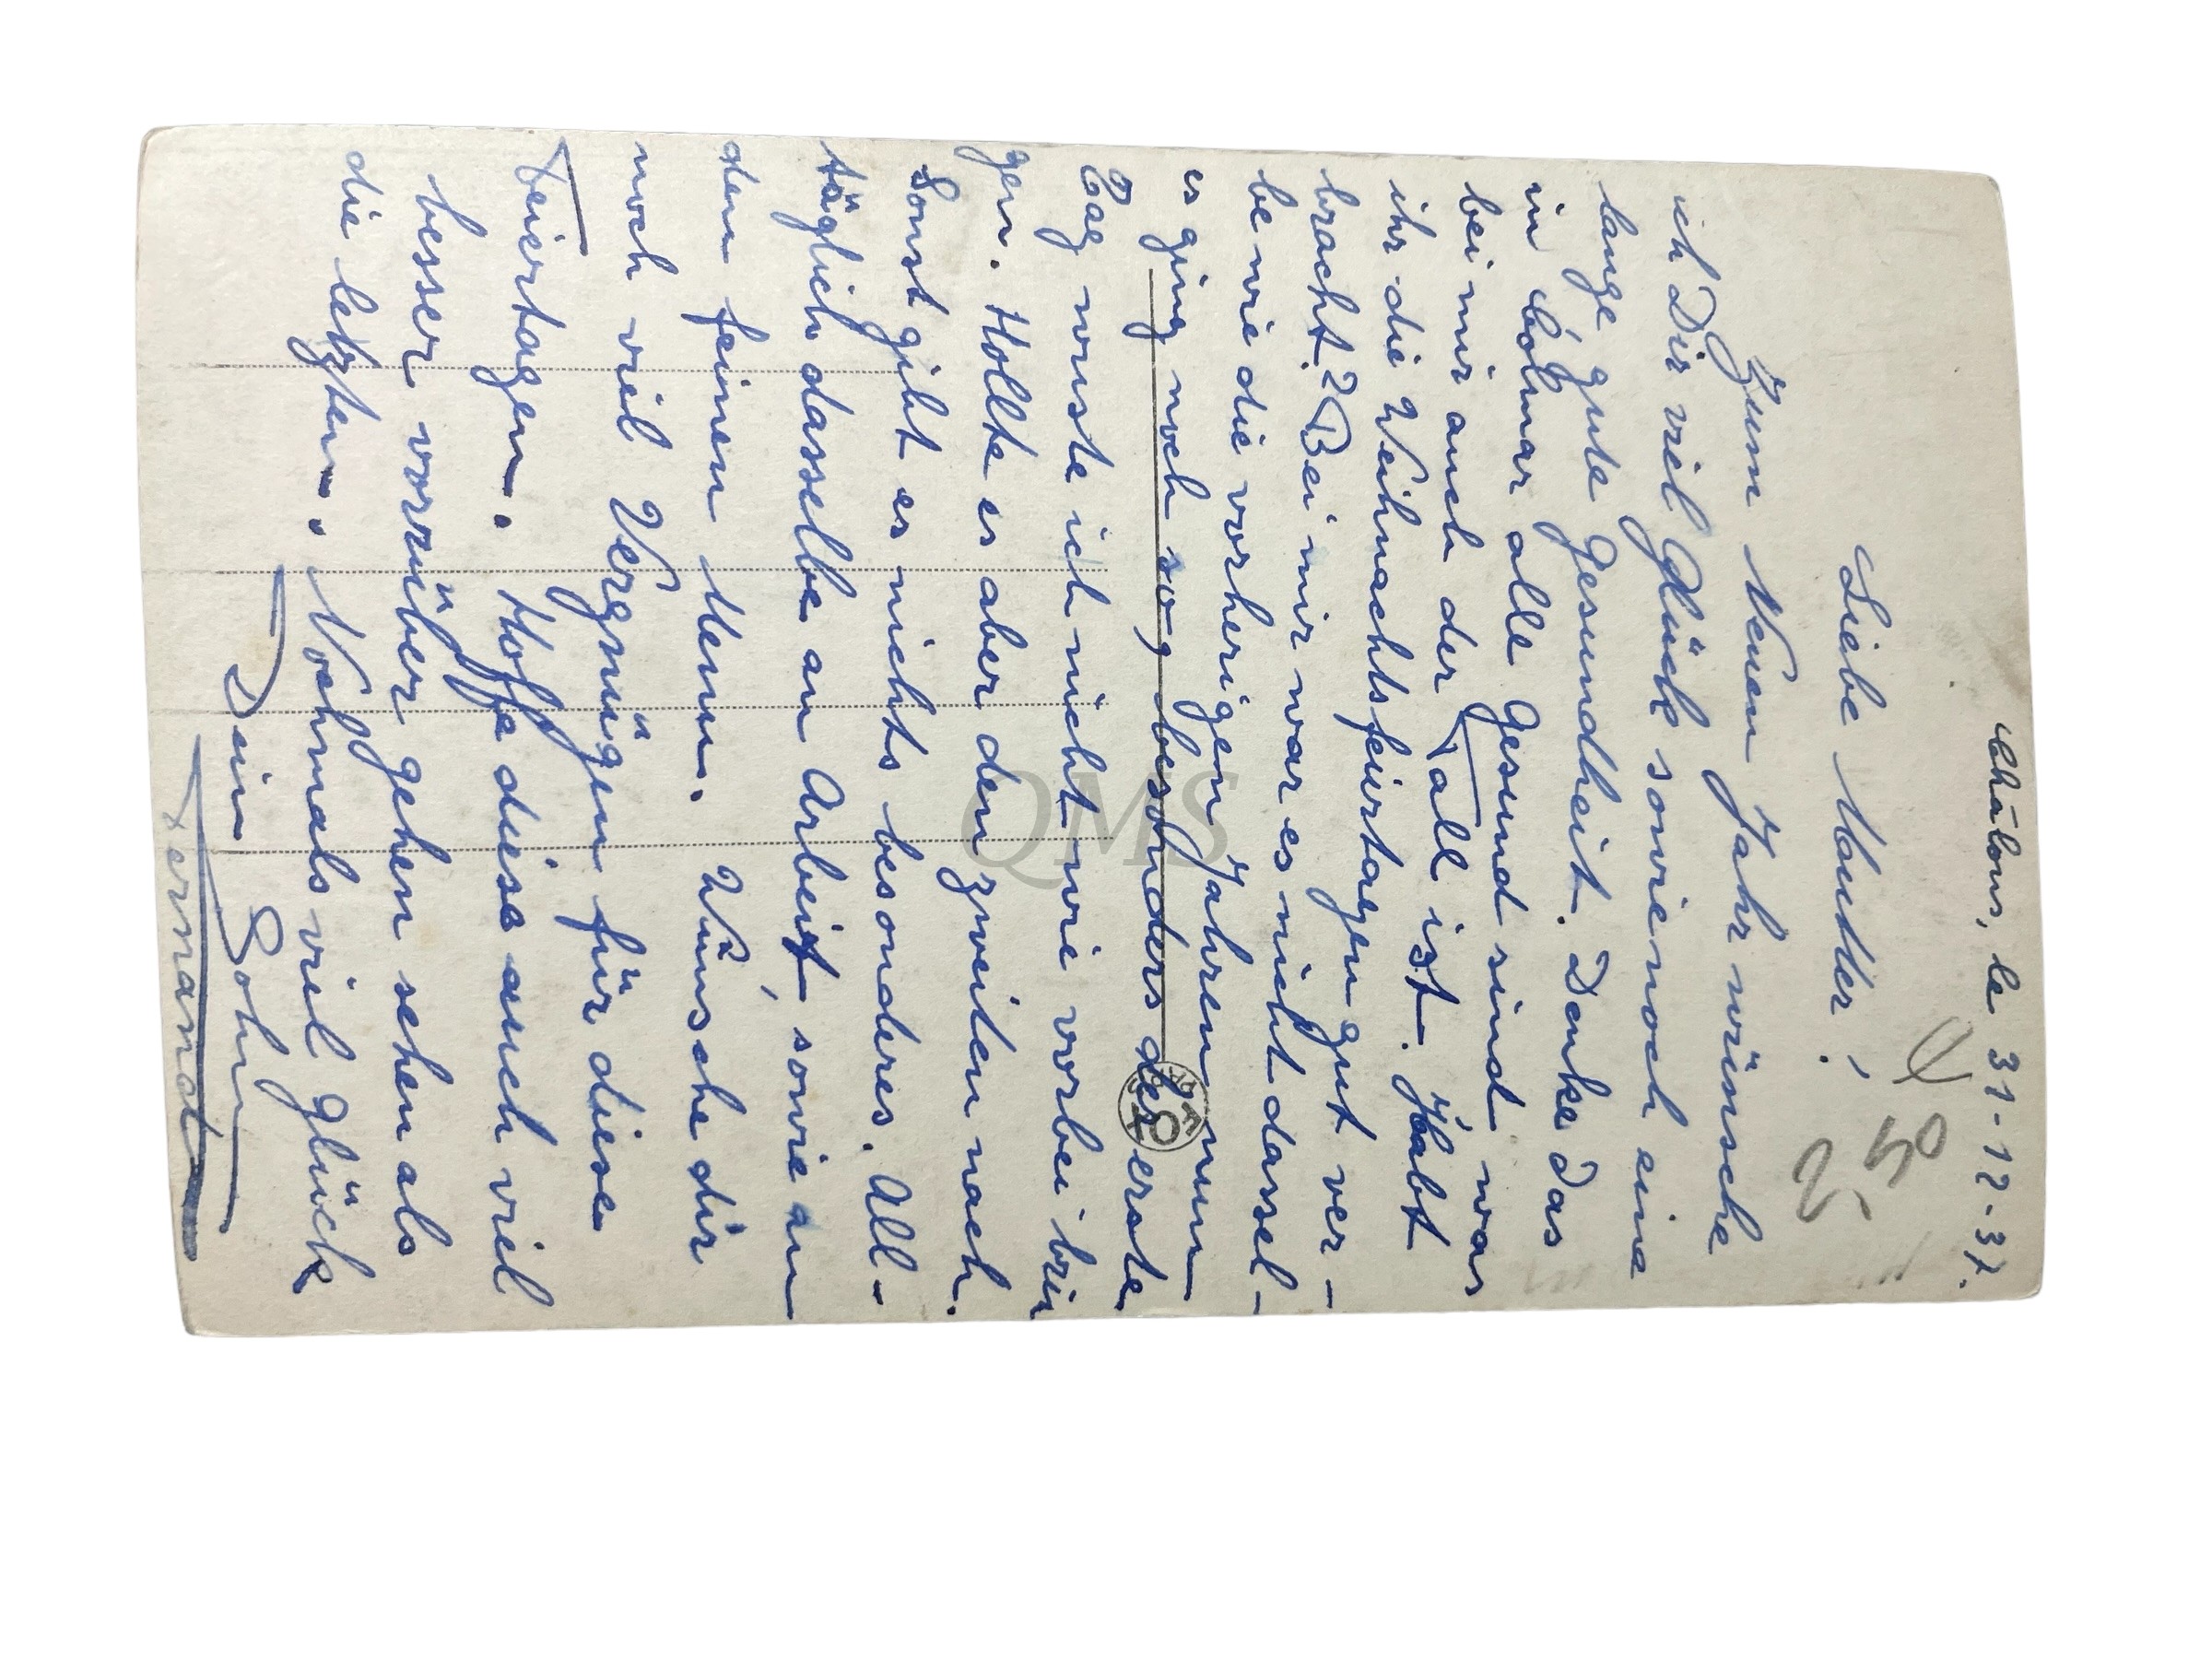 Châlons, le 31-12-37.
Liebe Mutter!
Zum Neuen Jahr wünsche
ich Dir viel Glück sowie noch eine
lange gute Gesundheit. Denke das
in Colmar alle Gesund sind was
bei mir auch der Fall ist. Habt
ihr die Weihnachtsfeiertagen gut ver-
bracht? Bei mir war es nicht dassel-
be wie die vorherigen Jahren nun
es ging noch so, besonders der erste
Tag wuste ich nicht wie vorbei brin
gen. Hollte es aber den zweiten nach.
Sonst gibt es nichts besonderes. All-
täglich dasselbe an Arbeit, sowie an
den feinen Menu. Wünsche dir
noch viel Vergnügen für diese
Feiertagen. Hoffe diese auch viel
besser vorrüber gehen sehen als
die letzten. Nochmals viel Glück
Dein Sohn
Fernand
QMS